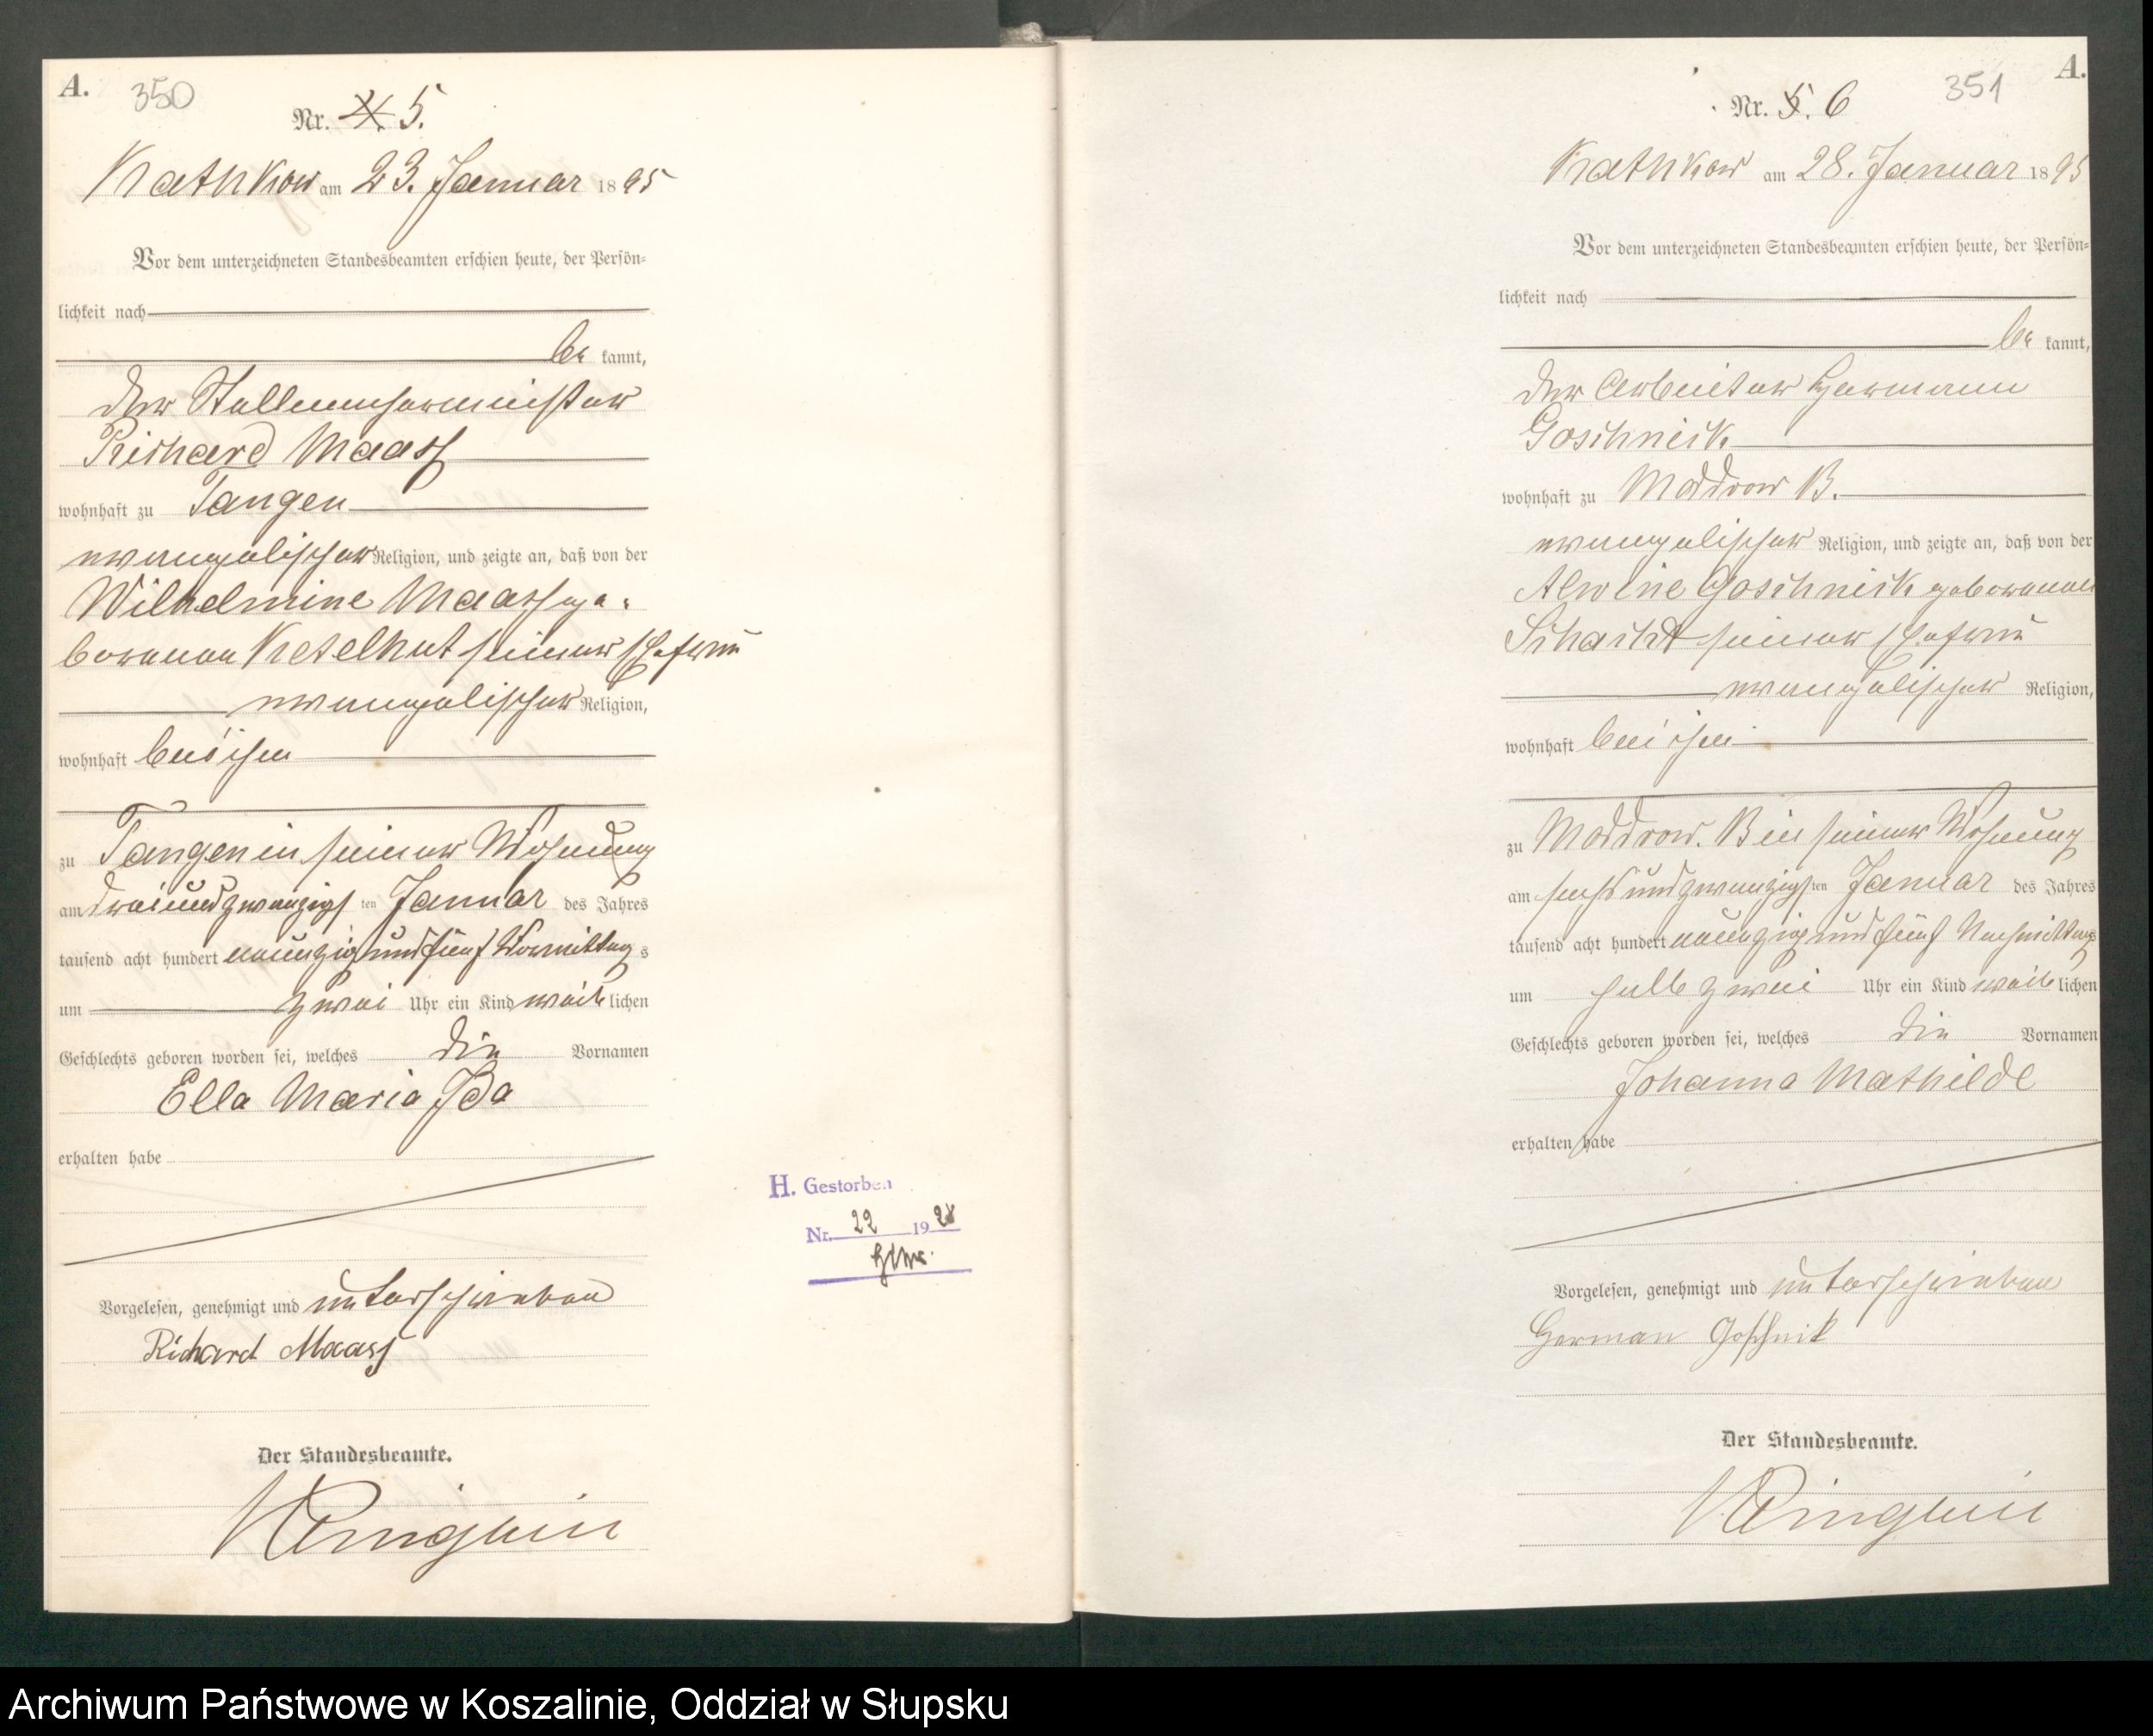 A.
350
Nr. 4. 5.
Rathkow am 23. Januar 1895
Vor dem unterzeichneten Standesbeamten erschien heute, der Persön-
lichkeit nach
be kannt,
der
Richard Maass
wohnhaft zu Tangen
evangelischer Religion, und zeigte an, daß von der
Wilhelmine Maass ge-
borenen Ketelhut seiner Ehefrau
evangelischer Religion,
wohnhaft bei ihm
zu Tangen in seiner Wohnung
am dreiundzwanzigsten Januar des Jahres
tausend acht hundert neunzig und fünf Vormittags
um zwei Uhr ein Kind weiblichen
Geschlechts geboren worden sei, welches die Vornamen
Ella Maria Ida
erhalten habe
H. Gestorben
Nr. 22 1928
Vorgelesen, genehmigt und unterschrieben
Richard Maass
Der Standesbeamte.
A.
351
Nr. 5. 6
Rathkow am 28. Januar 1895
Vor dem unterzeichneten Standesbeamten erschien heute, der Persön-
lichkeit nach
be kannt,
der Arbeiter Hermann
Goschnick
wohnhaft zu Moddrow B.
evangelischer Religion, und zeigte an, daß von der
Alwine Goschnick geborenen
Schacht seiner Ehefrau
evangelischer Religion,
wohnhaft bei ihm
zu Moddrow. B in seiner Wohnung
am sechsundzwanzigsten Januar des Jahres
tausend acht hundert neunzig und fünf Nachmittags
um halb zwei Uhr ein Kind weiblichen
Geschlechts geboren worden sei, welches die Vornamen
Johanna Mathilde
erhalten habe
Vorgelesen, genehmigt und unterschrieben
Herman Goschnik
Der Standesbeamte.
Archiwum Państwowe w Koszalinie, Oddział w Słupsku